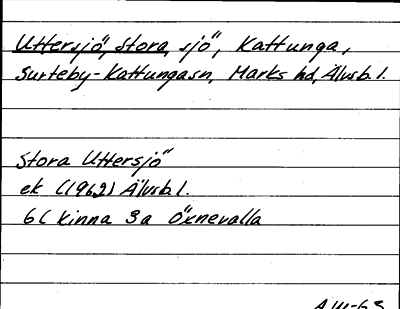 Uttersjö, Stora, sjö, Kattunga,
Surteby-Kattungasn, Marks hd, Älvsb. l.
Stora Uttersjö
ek (1962) Älvsb. l.
6C Kinna 3a Öxnevalla